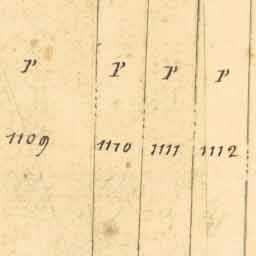 P P P P
1109 1110 1111 1112